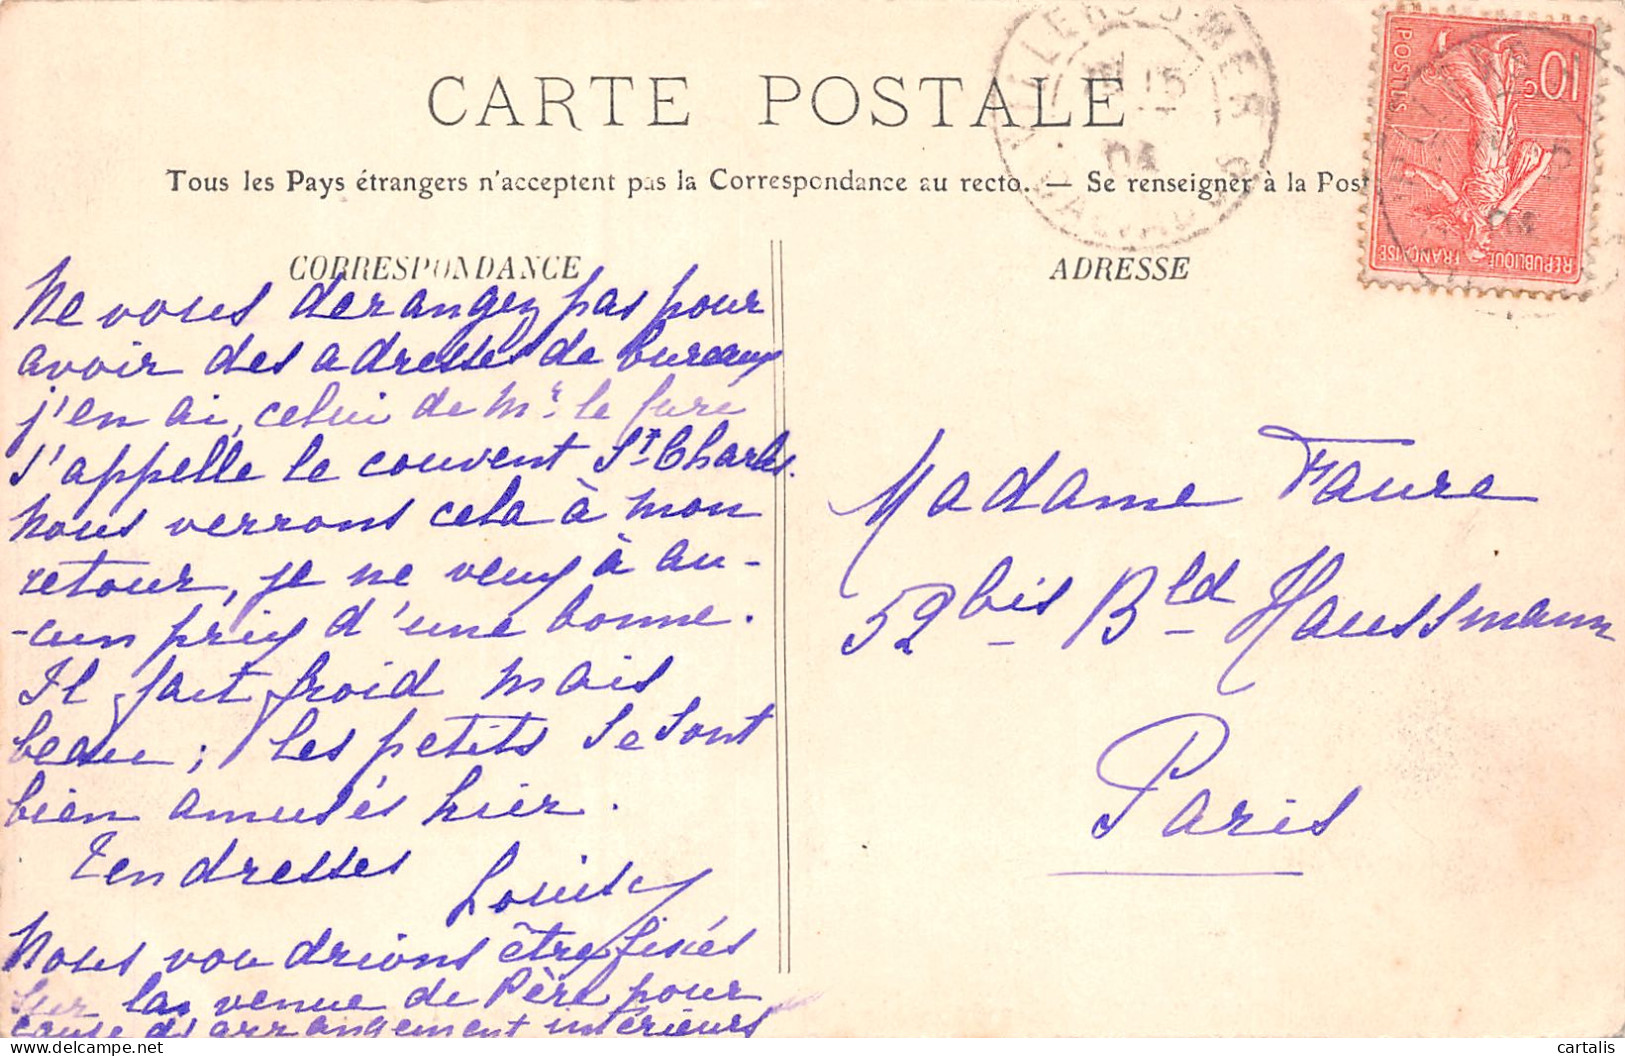 CARTE POSTALE
Tous les Pays étrangers n'acceptent pas la Correspondance au recto. — Se renseigner à la Post
CORRESPONDANCE
Ne vous derangez pas pour
avoir des adresses de bureaux
j'en ai, celui de Mr. le
s'appelle le couvent St Charles.
Nous verrons cela à mon
retour, je ne veux à au-
-cun prix d'une bonne.
Il fait froid mais
beau ; les petits se sont
bien amusés hier.
Tendresses
Louise
Nous voudrions être fixés
sur la venue de Père pour
cause d'arrangement intérieurs
ADRESSE
Madame Faure
59 bis Bld Haussmann
Paris
VILLERS-S-MER
CALVADOS
15
04
10c
POSTES
REPUBLIQUE FRANÇAISE
cartalis